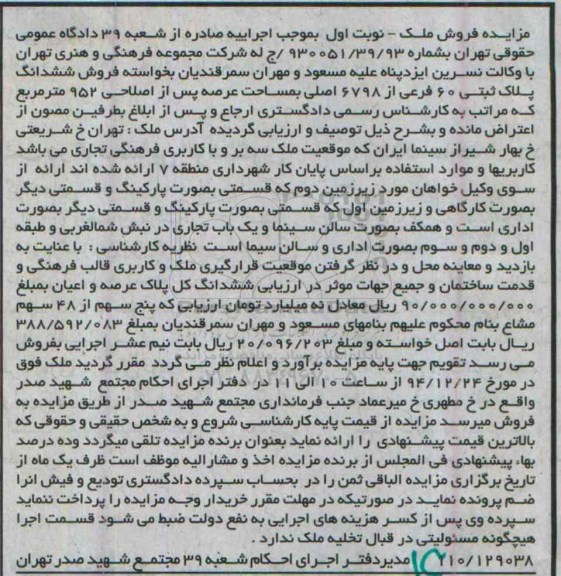 مزایده فروش ملک – نوبت اول بموجب اجراییه صادره از شعبه ۳۹ دادگاه عمومی
حقوقی تهران بشماره ۹۳۰۰۵۱/۳۹/۹۳ /ج له شرکت مجموعه فرهنگی و هنری تهران
با وکالت نسرین ایزدپناه علیه مسعود و مهران سمرقندیان بخواسته فروش ششدانگ
پلاک ثبتی ۶۰ فرعی از ۶۷۹۸ اصلی بمساحت عرصه پس از اصلاحی ۹۵۲ مترمربع
که مراتب به کارشناس رسمی دادگستری ارجاع و پس از ابلاغ بطرفین مصون از
اعتراض مانده و بشرح ذیل توصیف و ارزیابی گردیده آدرس ملک : تهران خ شریعتی
خ بهار شیراز سینما ایران که موقعیت ملک سه بر و با کاربری فرهنگی تجاری می باشد
کاربریها و موارد استفاده براساس پایان کار شهرداری منطقه ۷ ارائه شده اند ارائه از
سوی وکیل خواهان مورد زیرزمین دوم که قسمتی بصورت پارکینگ و قسمتی دیگر
بصورت کارگاهی و زیرزمین اول که قسمتی بصورت پارکینگ و قسمتی دیگر بصورت
اداری است و همکف بصورت سالن سینما و یک باب تجاری در نبش شمالغربی و طبقه
اول و دوم و سوم بصورت اداری و سالن سیما است نظریه کارشناسی : با عنایت به
بازدید و معاینه محل و در نظر گرفتن موقعیت قرارگیری ملک و کاربری قالب فرهنگی و
قدمت ساختمان و جمیع جهات موثر در ارزیابی ششدانگ کل پلاک عرصه و اعیان بمبلغ
۹۰/۰۰۰/۰۰۰/۰۰۰ ریال معادل نه میلیارد تومان ارزیابی که پنج سهم از ۴۸ سهم
مشاع بنام محکوم علیهم بنامهای مسعود و مهران سمرقندیان بمبلغ ۳۸۸/۵۹۲/۰۸۳
ریال بابت اصل خواسته و مبلغ ۲۰/۰۹۶/۲۰۳ ریال بابت نیم عشر اجرایی بفروش
می رسد تقویم جهت پایه مزایده برآورد و اعلام نظر می گردد مقرر گردید ملک فوق
در مورخ ۹۴/۱۲/۲۴ از ساعت ۱۰ الی ۱۱ در دفتر اجرای احکام مجتمع شهید صدر
واقع در خ مطهری خ میرعماد جنب فرمانداری مجتمع شهید صدر از طریق مزایده به
فروش میرسد مزایده از قیمت پایه کارشناسی شروع و به شخص حقیقی و حقوقی که
بالاترین قیمت پیشنهادی را ارائه نماید بعنوان برنده مزایده تلقی میگردد وده درصد
بهاء پیشنهادی فی المجلس از برنده مزایده اخذ و مشارالیه موظف است ظرف یک ماه از
تاریخ برگزاری مزایده الباقی ثمن را در بحساب سپرده دادگستری تودیع و فیش انرا
ضم پرونده نماید در صورتیکه در مهلت مقرر خریدار وجه مزایده را پرداخت ننماید
سپرده وی پس از کسر هزینه های اجرایی به نفع دولت ضبط می شود قسمت اجرا
هیچگونه مسئولیتی در قبال تخلیه ملک ندارد .
۲۱۰/۱۲۹۰۳۸ مدیردفتر اجرای احکام شعبه ۳۹ مجتمع شهید صدر تهران